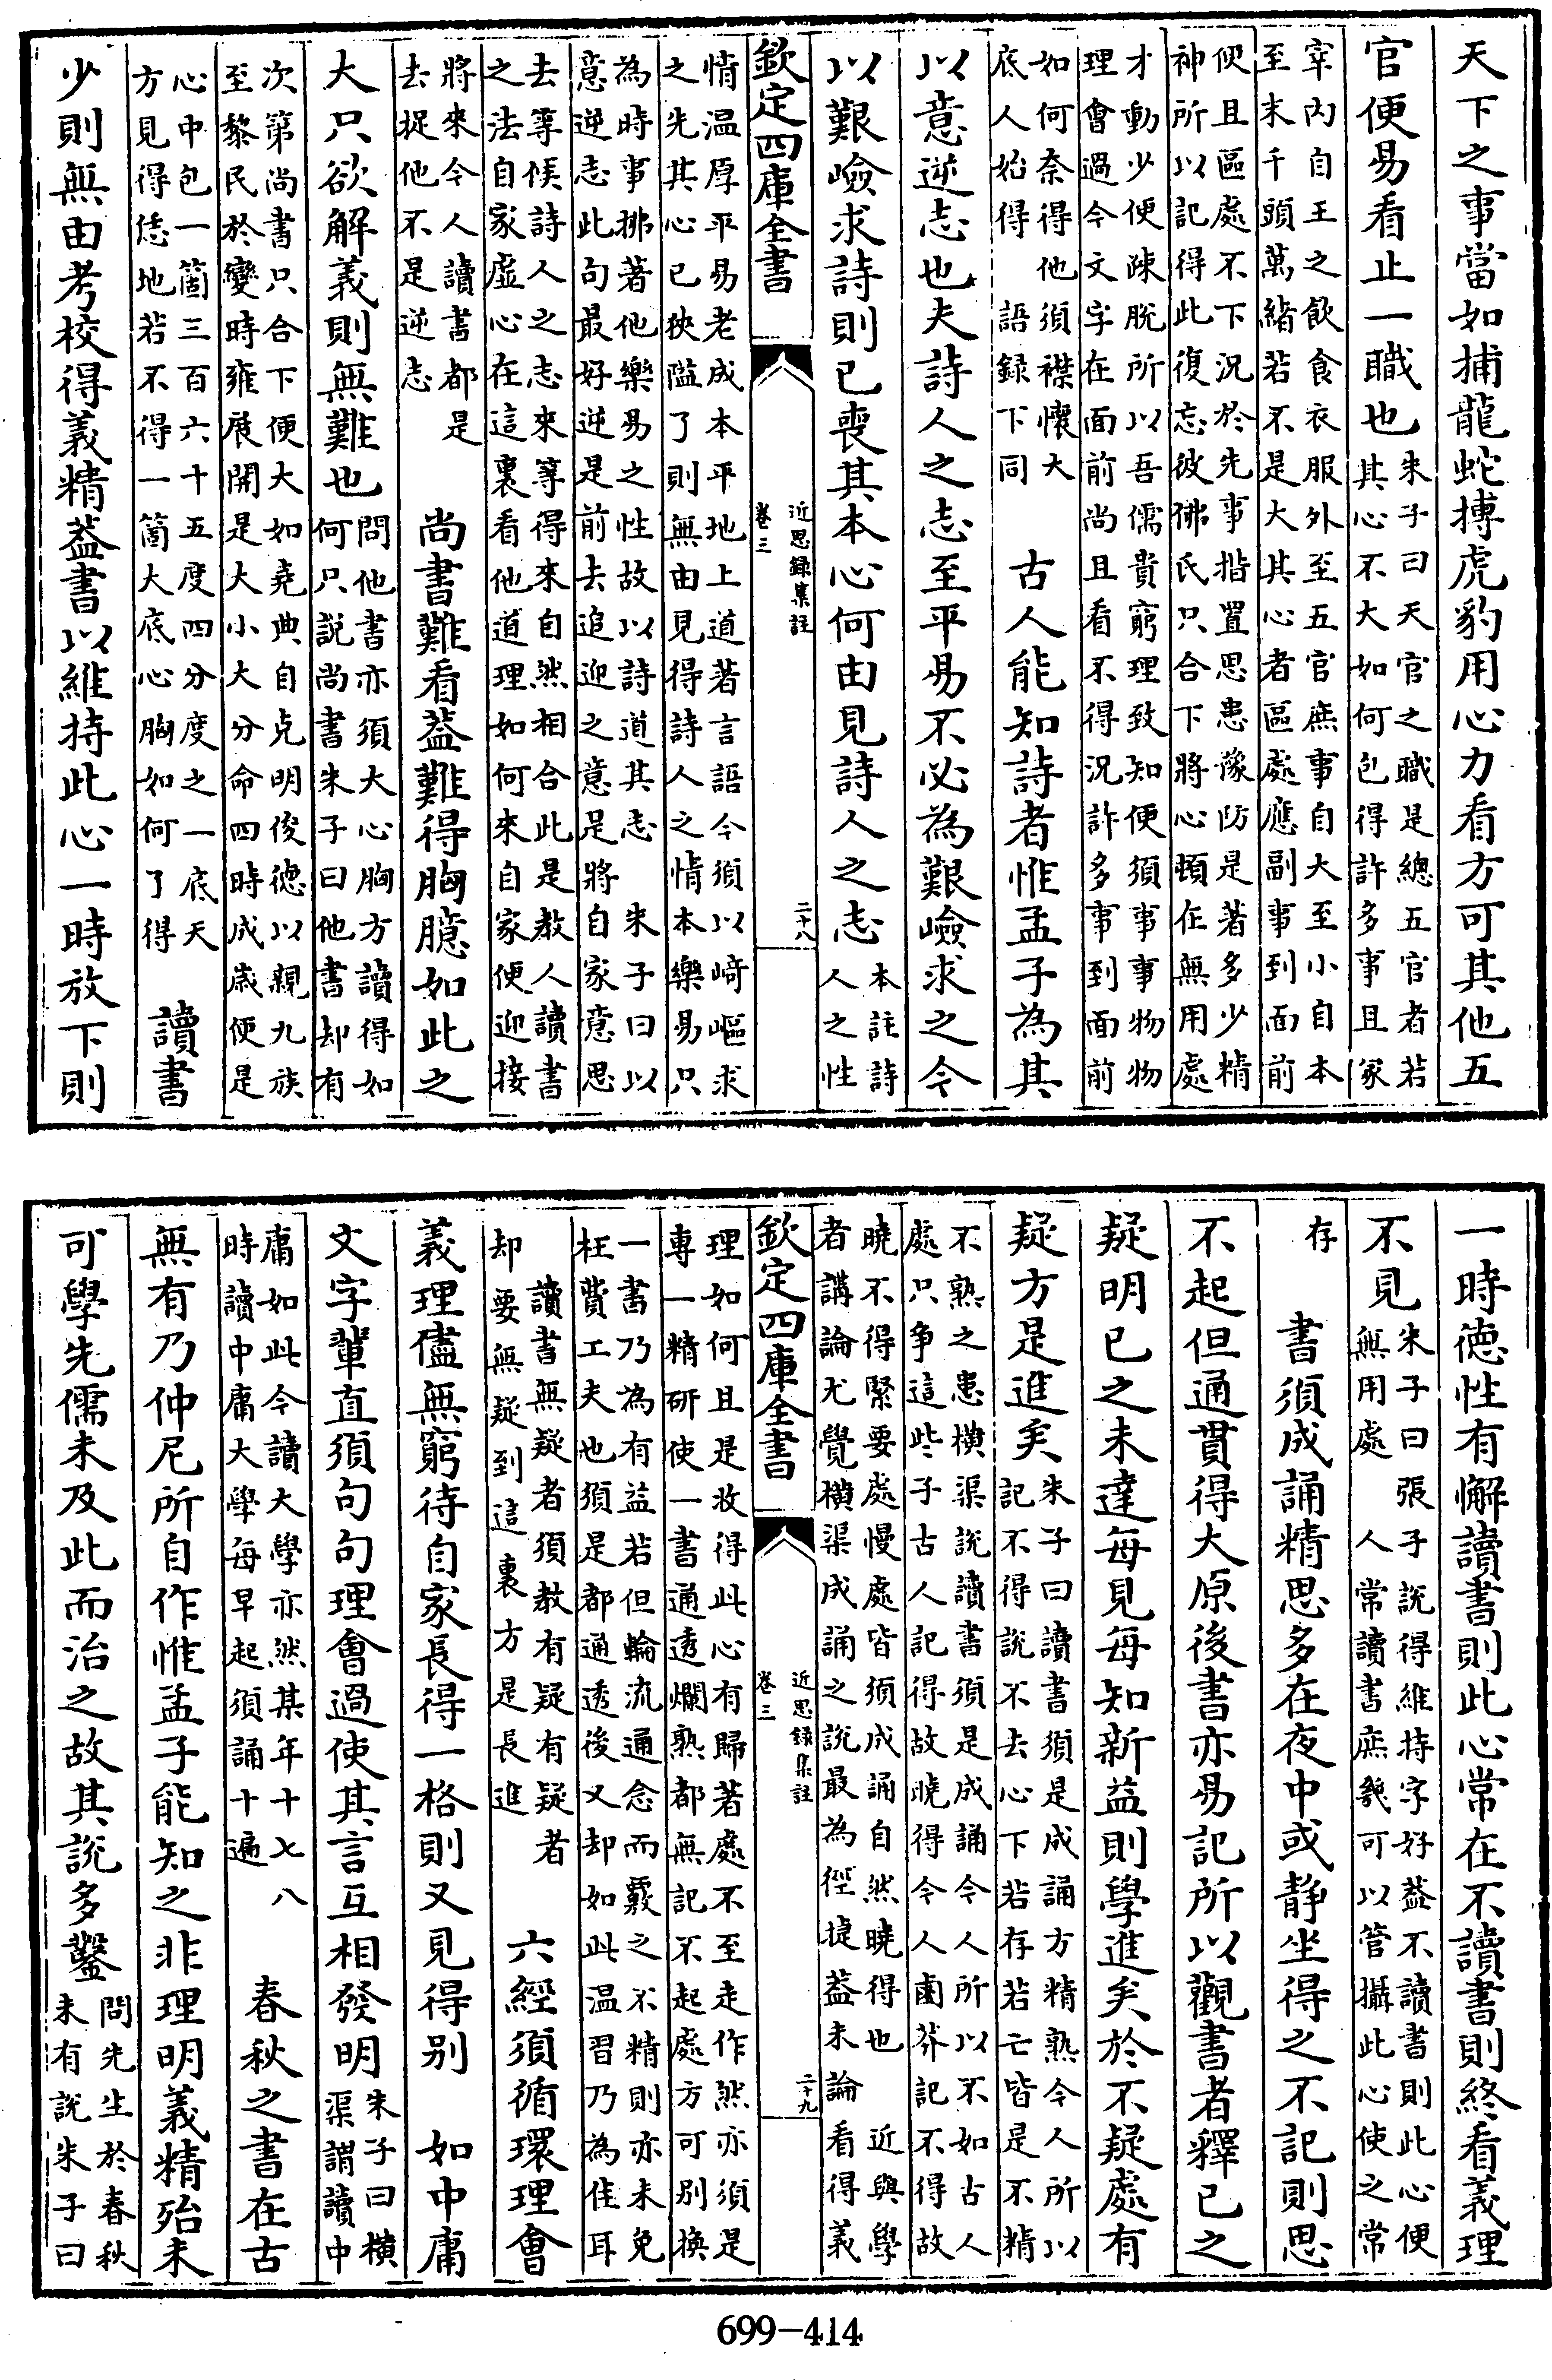 天下之事當如捕龍蛇搏虎豹用心力看方可其他五
官便易看止一職也
朱子曰天官之職是總五官者若
其心不大如何包得許多事且冢
宰内自王之飲食衣服外至五官庶事自大至小自本
至末千頭萬緒若不是大其心者區處應副事到面前
便且區處不下況於先事措置思患豫防是著多少精
神所以記得此復忘彼佛氏只合下將心頓在無用處
才動少便疎脫所以吾儒貴窮理致知便須事事物物
理會過今文字在面前尚且看不得況許多事到面前
如何奈得他須襟懷大
底人始得 語録下同
古人能知詩者惟孟子為其
以意逆志也夫詩人之志至平易不必為艱嶮求之今
以艱嶮求詩則已喪其本心何由見詩人之志
本註詩
人之性
欽定四庫全書
近思録集註
卷三
二十八
情温厚平易老成本平地上道著言語今須以﨑嶇求
之先其心已狹隘了則無由見得詩人之情本樂易只
為時事拂著他樂易之性故以詩道其志 朱子曰以
意逆志此句最好逆是前去追迎之意是將自家意思
去等候詩人之志來等得來自然相合此是教人讀書
之法自家虛心在這裏看他道理如何來自家便迎接
將來今人讀書都是
去捉他不是逆志
尚書難看蓋難得胸臆如此之
大只欲解義則無難也
問他書亦須大心胸方讀得如
何只說尚書朱子曰他書却有
次第尚書只合下便大如堯典自克明俊德以親九族
至黎民於變時雍展開是大小大分命四時成歲便是
心中包一箇三百六十五度四分度之一底天
方見得恁地若不得一箇大底心胸如何了得
讀書
少則無由考校得義精蓋書以維持此心一時放下則
一時德性有懈讀書則此心常在不讀書則終看義理
不見
朱子曰 張子說得維持字好蓋不讀書則此心便
無用處 人常讀書庶幾可以管攝此心使之常
存
書須成誦精思多在夜中或靜坐得之不記則思
不起但通貫得大原後書亦易記所以觀書者釋己之
疑明己之未達每見每知新益則學進矣於不疑處有
疑方是進矣
朱子曰讀書須是成誦方精熟今人所以
記不得說不去心下若存若亡皆是不精
不熟之患橫渠說讀書須是成誦今人所以不如古人
處只争這些子古人記得故曉得今人鹵莽記不得故
曉不得緊要處慢處皆須成誦自然曉得也 近與學
者講論尤覺橫渠成誦之說最為徑捷蓋未論看得義
欽定四庫全書
近思録集註
卷三
二十九
理如何且是收得此心有歸著處不至走作然亦須是
專一精研使一書通透爛熟都無記不起處方可別換
一書乃為有益若但輪流通念而覈之不精則亦未免
枉費工夫也須是都通透後又却如此温習乃為佳耳
讀書無疑者須教有疑有疑者
却要無疑到這裏方是長進
六經須循環理會
義理儘無窮待自家長得一格則又見得别 如中庸
文字輩直須句句理會過使其言互相發明
朱子曰橫
渠謂讀中
庸如此今讀大學亦然某年十七八
時讀中庸大學每早起須誦十遍
春秋之書在古
無有乃仲尼所自作惟孟子能知之非理明義精殆未
可學先儒未及此而治之故其說多鑿
問先生於春秋
未有說朱子曰
699-414